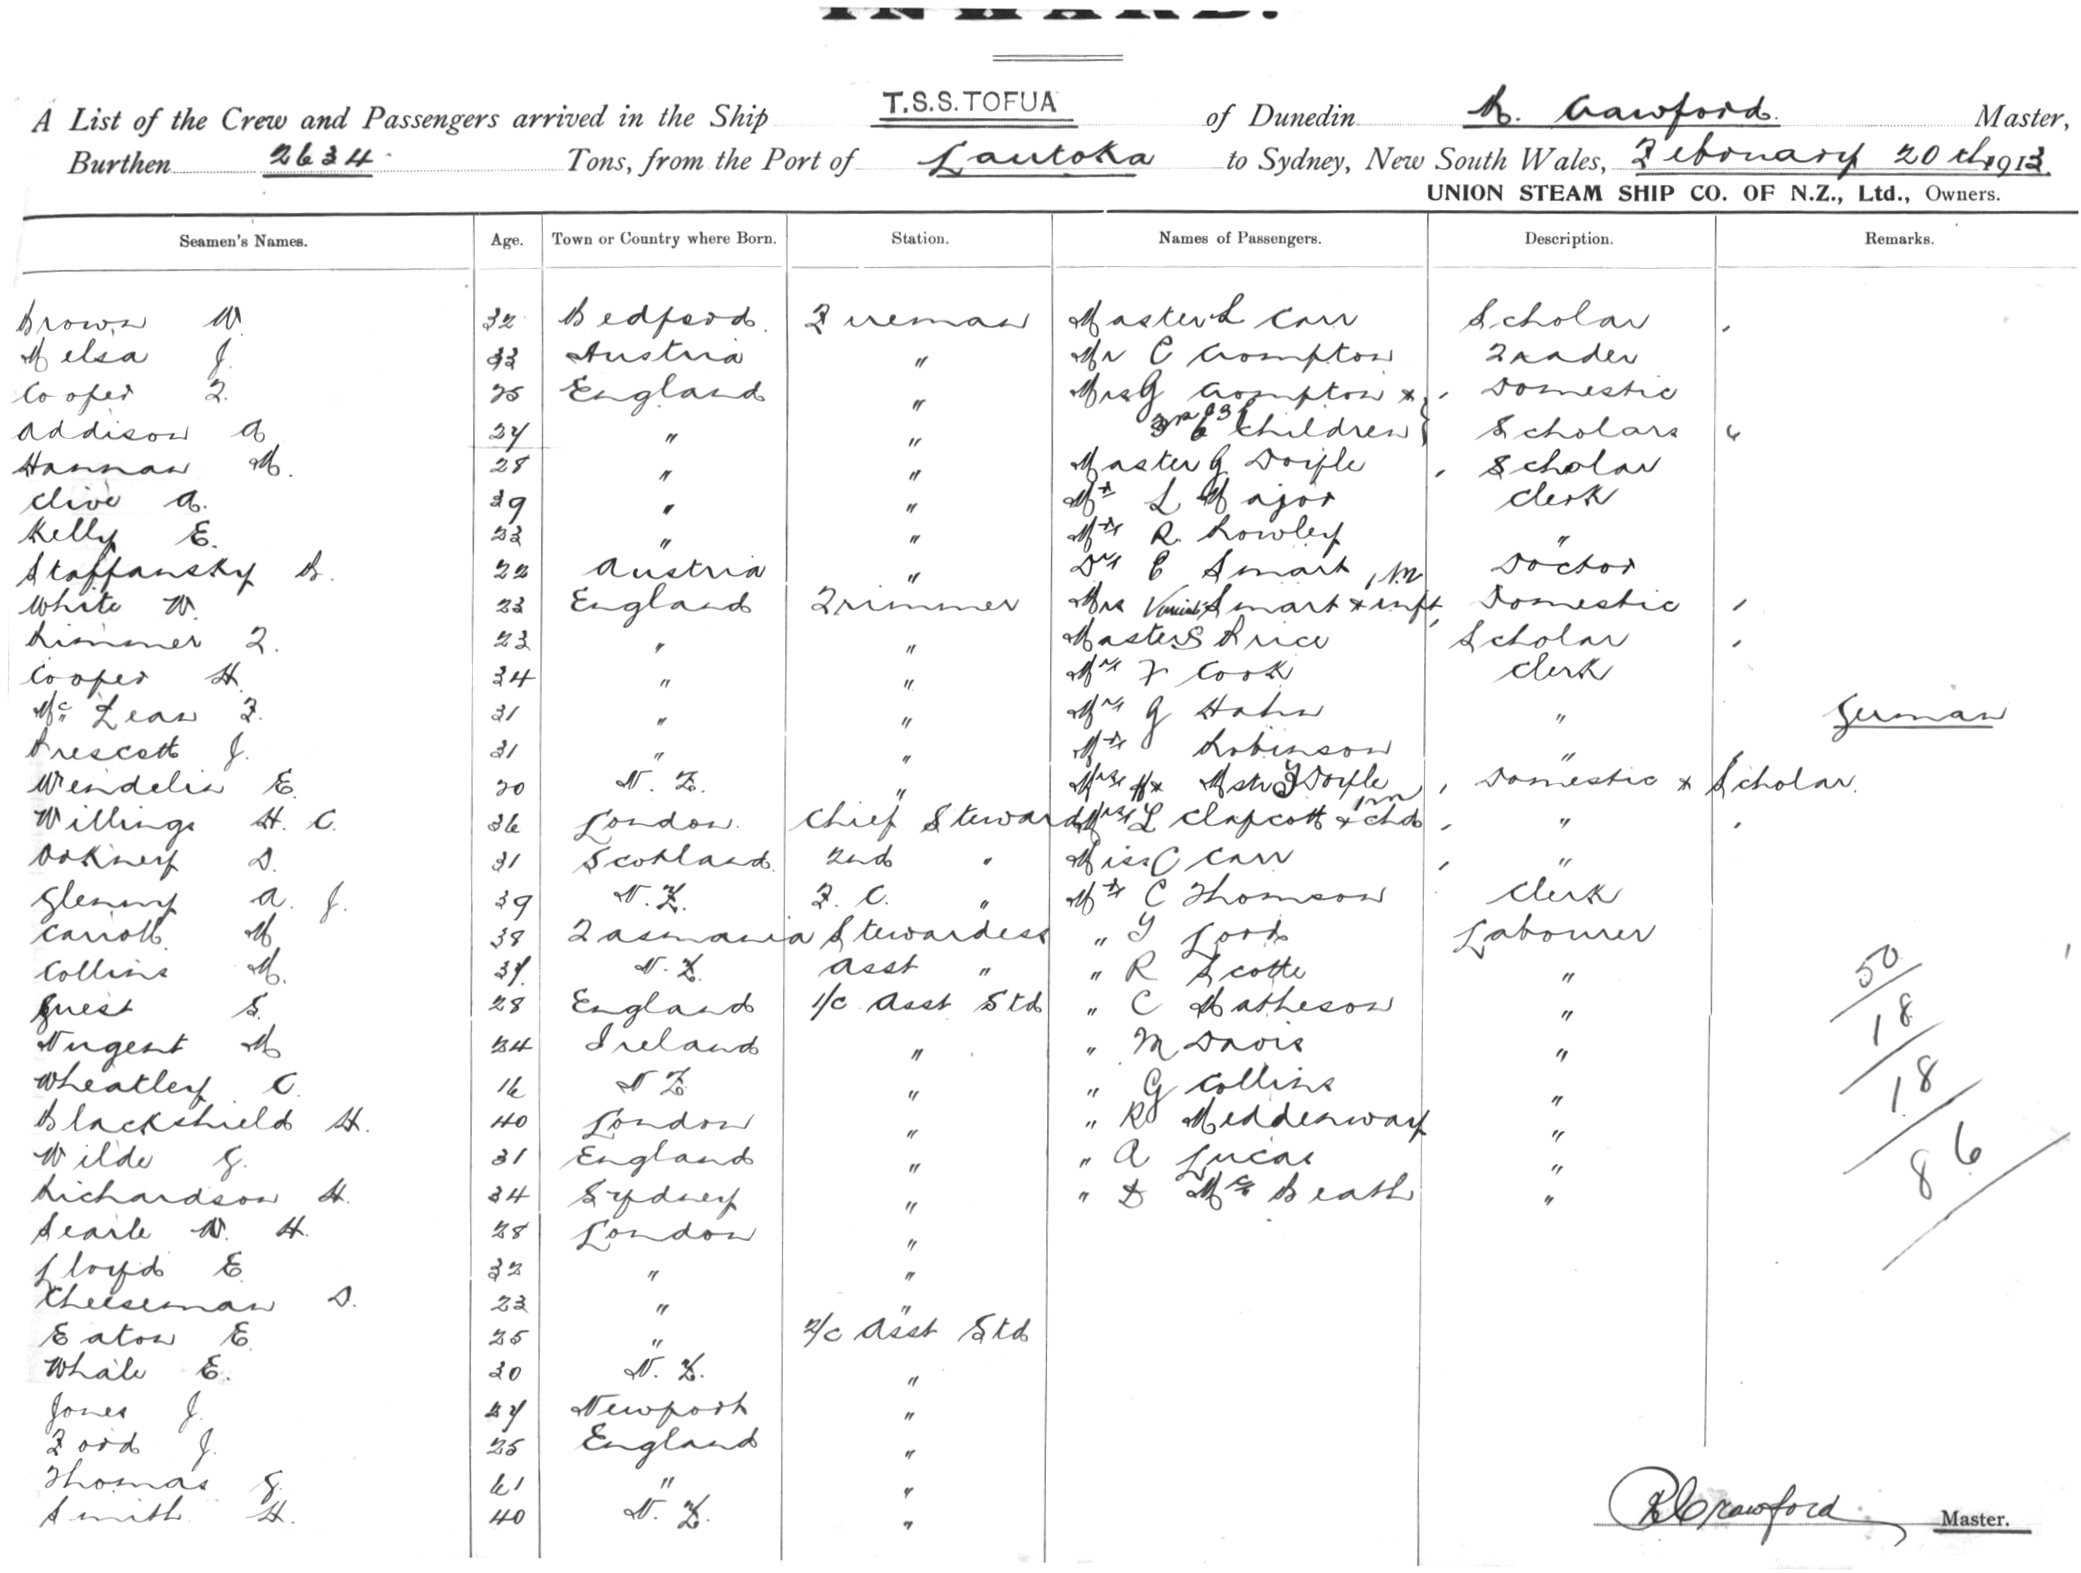 INWARD.
A List of the Crew and Passengers arrived in the Ship T.S.S. TOFUA of Dunedin R. Crawford Master,
Burthen 2634 Tons, from the Port of Lautoka to Sydney, New South Wales, February 20th 1913.
UNION STEAM SHIP CO. OF N.Z., Ltd., Owners.
Seamen's Names. Age. Town or Country where Born. Station. Names of Passengers. Description. Remarks.
Brown W. 32 Bedford. Fireman Master L Carr Scholar
Melsa J. 33 Austria " Mr C Crompton Trader
Cooper F. 25 England " Mrs G Crompton & Domestic
Addison A 27 " " children Scholars
Hannan M. 28 " " Master G Doyle Scholar
Clive A. 39 " " Mr L Major Clerk
Kelly E. 23 " " Mr R. Rowley "
Staffansky B. 22 Austria " Dr E Smart Doctor
White W. 23 England Trimmer Mrs Smart & inft Domestic
Rimmer F. 23 " " Master S Price Scholar
Cooper H. 34 " " Mr F Cook Clerk
McLean F. 31 " " Mr G Hahn " German
Prescott J. 31 " " Mr Robinson "
Wendelin E. 20 N. Z. " Mrs H & Mstr J Doyle Domestic & Scholar.
Willings H. C. 36 London. Chief Steward Mrs L Clapcott & chd "
Orkney D. 31 Scotland 2nd " Miss C Carr "
Glenny A. J. 39 N. Z. F. C. " Mr C Thomson Clerk
Carroll M 38 Tasmania Stewardess " Y Lord Labourer
Collins M. 37. N. Z. Asst " " R Scotte "
Guest S. 28 England 1/c Asst Std " C Matheson "
Nugent M 24 Ireland " " M Davis "
Wheatley C. 16 N Z. " " G Collins "
Blackshield H. 40 London " " R Meddenway "
Wilde G. 31 England " " A Lucas "
Richardson H. 34 Sydney " " D McBeath "
Searle W. H. 28 London "
Lloyd E 32 " "
Cheeseman D. 23 " "
Eaton E 25 " 2/c Asst Std
Whale E. 30 N. Z. "
Jones J. 27 Newport "
Ford J. 25 England "
Thomas G. 61 " "
Smith H. 40 N. Z. "
50
18
18
86
R Crawford Master.